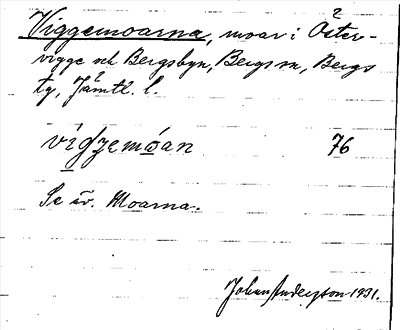 Viggemoarna, moar i Öster-
vigge och Bergsbyn, Bergs sn, Bergs
tg, Jämtl. l.
76
Se äv. Moarna.
Johan Anderzton 1931.